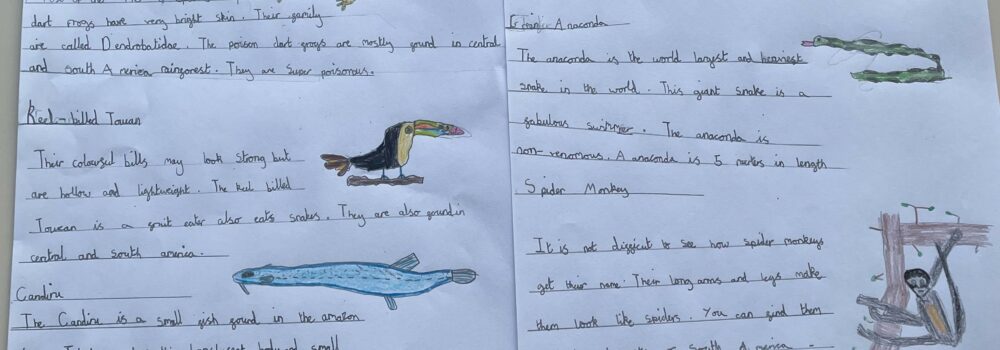 dart frogs have very bright skin. Their family
are called Dendrobatidae. The poison dart frogs are mostly found in central
and South America rainforest. They are super poisonous.
Keel-billed Toucan
Their colourful bills may look strong but
are hollow and lightweight. The keel billed
Toucan is a fruit eater also eats snakes. They are also found in
central and south america.
Candiru
The Candiru is a small fish found in the amazon
small
Anaconda
The anaconda is the world largest and heaviest
snake in the world. This giant snake is a
fabulous swimmer. The anaconda is
non-venomous. A anaconda is 5 meters in length
Spider Monkey
It is not difficult to see how spider monkeys
get their name. Their long arms and legs make
them look like spiders. You can find them
South America